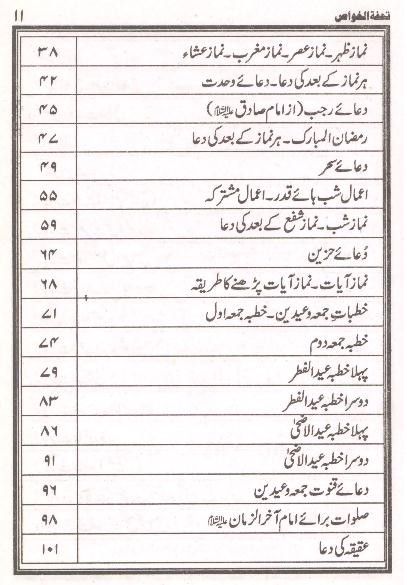 تحفۃ الخواص ۱۱
نماز ظہر۔ نماز عصر۔ نماز مغرب۔ نماز عشاء ۳۸
ہر نماز کے بعد کی دعا۔ دعائے وحدت ۴۲
دعائے رجب (از امام صادق علیہ السلام) ۴۵
رمضان المبارک۔ ہر نماز کے بعد کی دعا ۴۷
دعائے سحر ۴۹
اعمال شب ہائے قدر۔ اعمال مشترکہ ۵۵
نماز شب۔ نماز شفع کے بعد کی دعا ۵۹
دُعائے حزین ۶۴
نماز آیات۔ نماز آیات پڑھنے کا طریقہ ۶۸
خطبات جمعہ و عیدین۔ خطبہ جمعہ اول ۷۱
خطبہ جمعہ دوم ۷۴
پہلا خطبہ عید الفطر ۷۹
دوسرا خطبہ عید الفطر ۸۳
پہلا خطبہ عید الاضحیٰ ۸۶
دوسرا خطبہ عید الاضحیٰ ۹۱
دعائے قنوت جمعہ و عیدین ۹۶
صلوات برائے امام آخر الزمان علیہ السلام ۹۸
عقیقہ کی دعا ۱۰۱